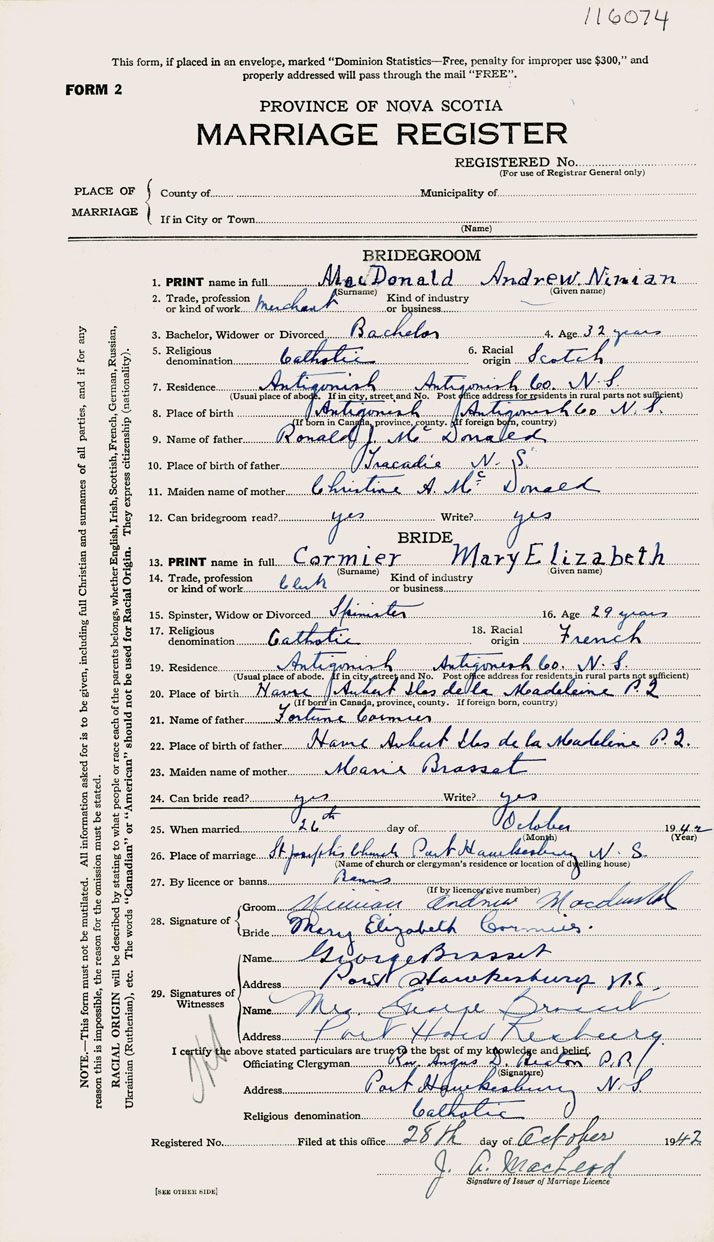 116074
This form, if placed in an envelope, marked "Dominion Statistics—Free, penalty for improper use $300," and
properly addressed will pass through the mail "FREE".
FORM 2
PROVINCE OF NOVA SCOTIA
MARRIAGE REGISTER
REGISTERED No.
(For use of Registrar General only)
PLACE OF MARRIAGE
County of Municipality of
If in City or Town
(Name)
BRIDEGROOM
1. PRINT name in full MacDonald Andrew Ninian
(Surname) (Given name)
2. Trade, profession or kind of work Merchant Kind of industry or business
3. Bachelor, Widower or Divorced Bachelor 4. Age 32 years
5. Religious denomination Catholic 6. Racial origin Scotch
7. Residence Antigonish Antigonish Co. N.S.
(Usual place of abode. If in city, street and No. Post office address for residents in rural parts not sufficient)
8. Place of birth Antigonish Antigonish Co N.S.
(If born in Canada, province, county. If foreign born, country)
9. Name of father Ronald J. McDonald
10. Place of birth of father Tracadie N.S.
11. Maiden name of mother Christine A. McDonald
12. Can bridegroom read? yes Write? yes
BRIDE
13. PRINT name in full Cormier Mary Elizabeth
(Surname) (Given name)
14. Trade, profession or kind of work Clerk Kind of industry or business
15. Spinster, Widow or Divorced Spinister 16. Age 29 years
17. Religious denomination Catholic 18. Racial origin French
19. Residence Antigonish Antigonish Co. N.S.
(Usual place of abode. If in city, street and No. Post office address for residents in rural parts not sufficient)
20. Place of birth Havre Aubert Iles de la Madeleine P.Q
(If born in Canada, province, county. If foreign born, country)
21. Name of father Fortune Cormier
22. Place of birth of father Havre Aubert Iles de la Madeline P.Q.
23. Maiden name of mother Marie Brasset
24. Can bride read? yes Write? yes
25. When married 26th day of October 1942
(Month) (Year)
26. Place of marriage St Josephs Church Port Hawkesbury N.S.
(Name of church or clergyman's residence or location of dwelling house)
27. By licence or banns Banns
(If by licence, give number)
28. Signature of
Groom Ninian Andrew Macdonald
Bride Mary Elizabeth Cormier.
29. Signatures of Witnesses
Name George Brasset
Address Port Hawkesbury N.S.
Name Mrs. George Brasset
Address Port Hawkesbury
I certify the above stated particulars are true to the best of my knowledge and belief.
Officiating Clergyman Rev. Angus D. Beaton P.P.
(Signature)
Address Port Hawkesbury N.S.
Religious denomination Catholic
Registered No. Filed at this office 28th day of October 1942
J. A. MacLeod
Signature of Issuer of Marriage Licence
[SEE OTHER SIDE]
NOTE.—This form must not be mutilated. All information asked for is to be given, including full Christian and surnames of all parties, and if for any
reason this is impossible, the reason for the omission must be stated.
RACIAL ORIGIN will be described by stating to what people or race each of the parents belongs, whether English, Irish, Scottish, French, German, Russian,
Ukrainian (Ruthenian), etc. The words "Canadian" or "American" should not be used for Racial Origin. They express citizenship (nationality).